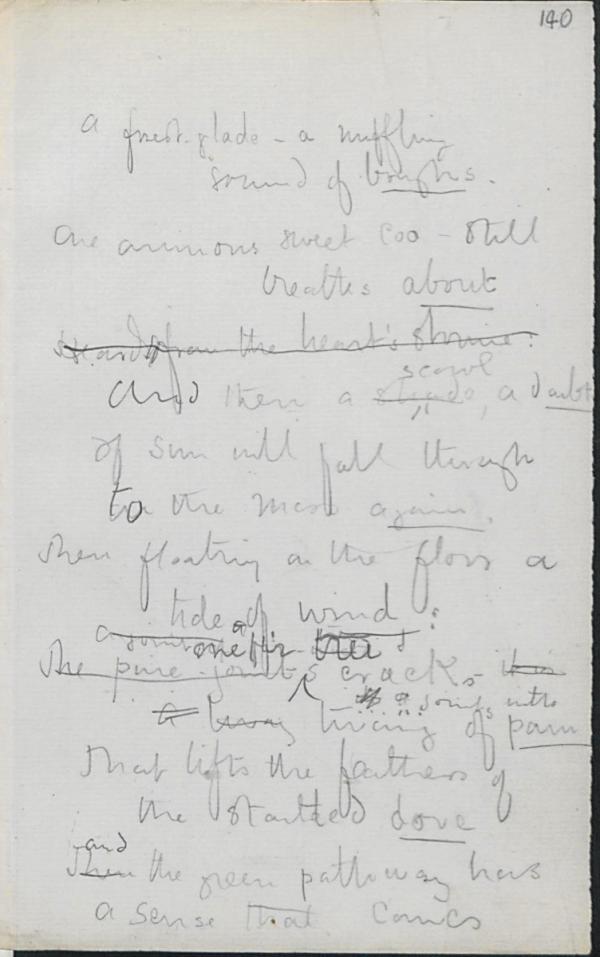 140
A forest-glade - a muffling
sound of boughs.
One anxious sweet Coo - still
breathes about
from the heart's shrine:
scowl
And then a shade, a doubt
of sun will fall through
to the moss again.
Then floating on the floor a
tide of wind:
a joint of
one fir tree
The pine-joints cracks
a living of pain
That lifts the feathers of
the startled dove
and
Then the green pathway has
a sense that comes